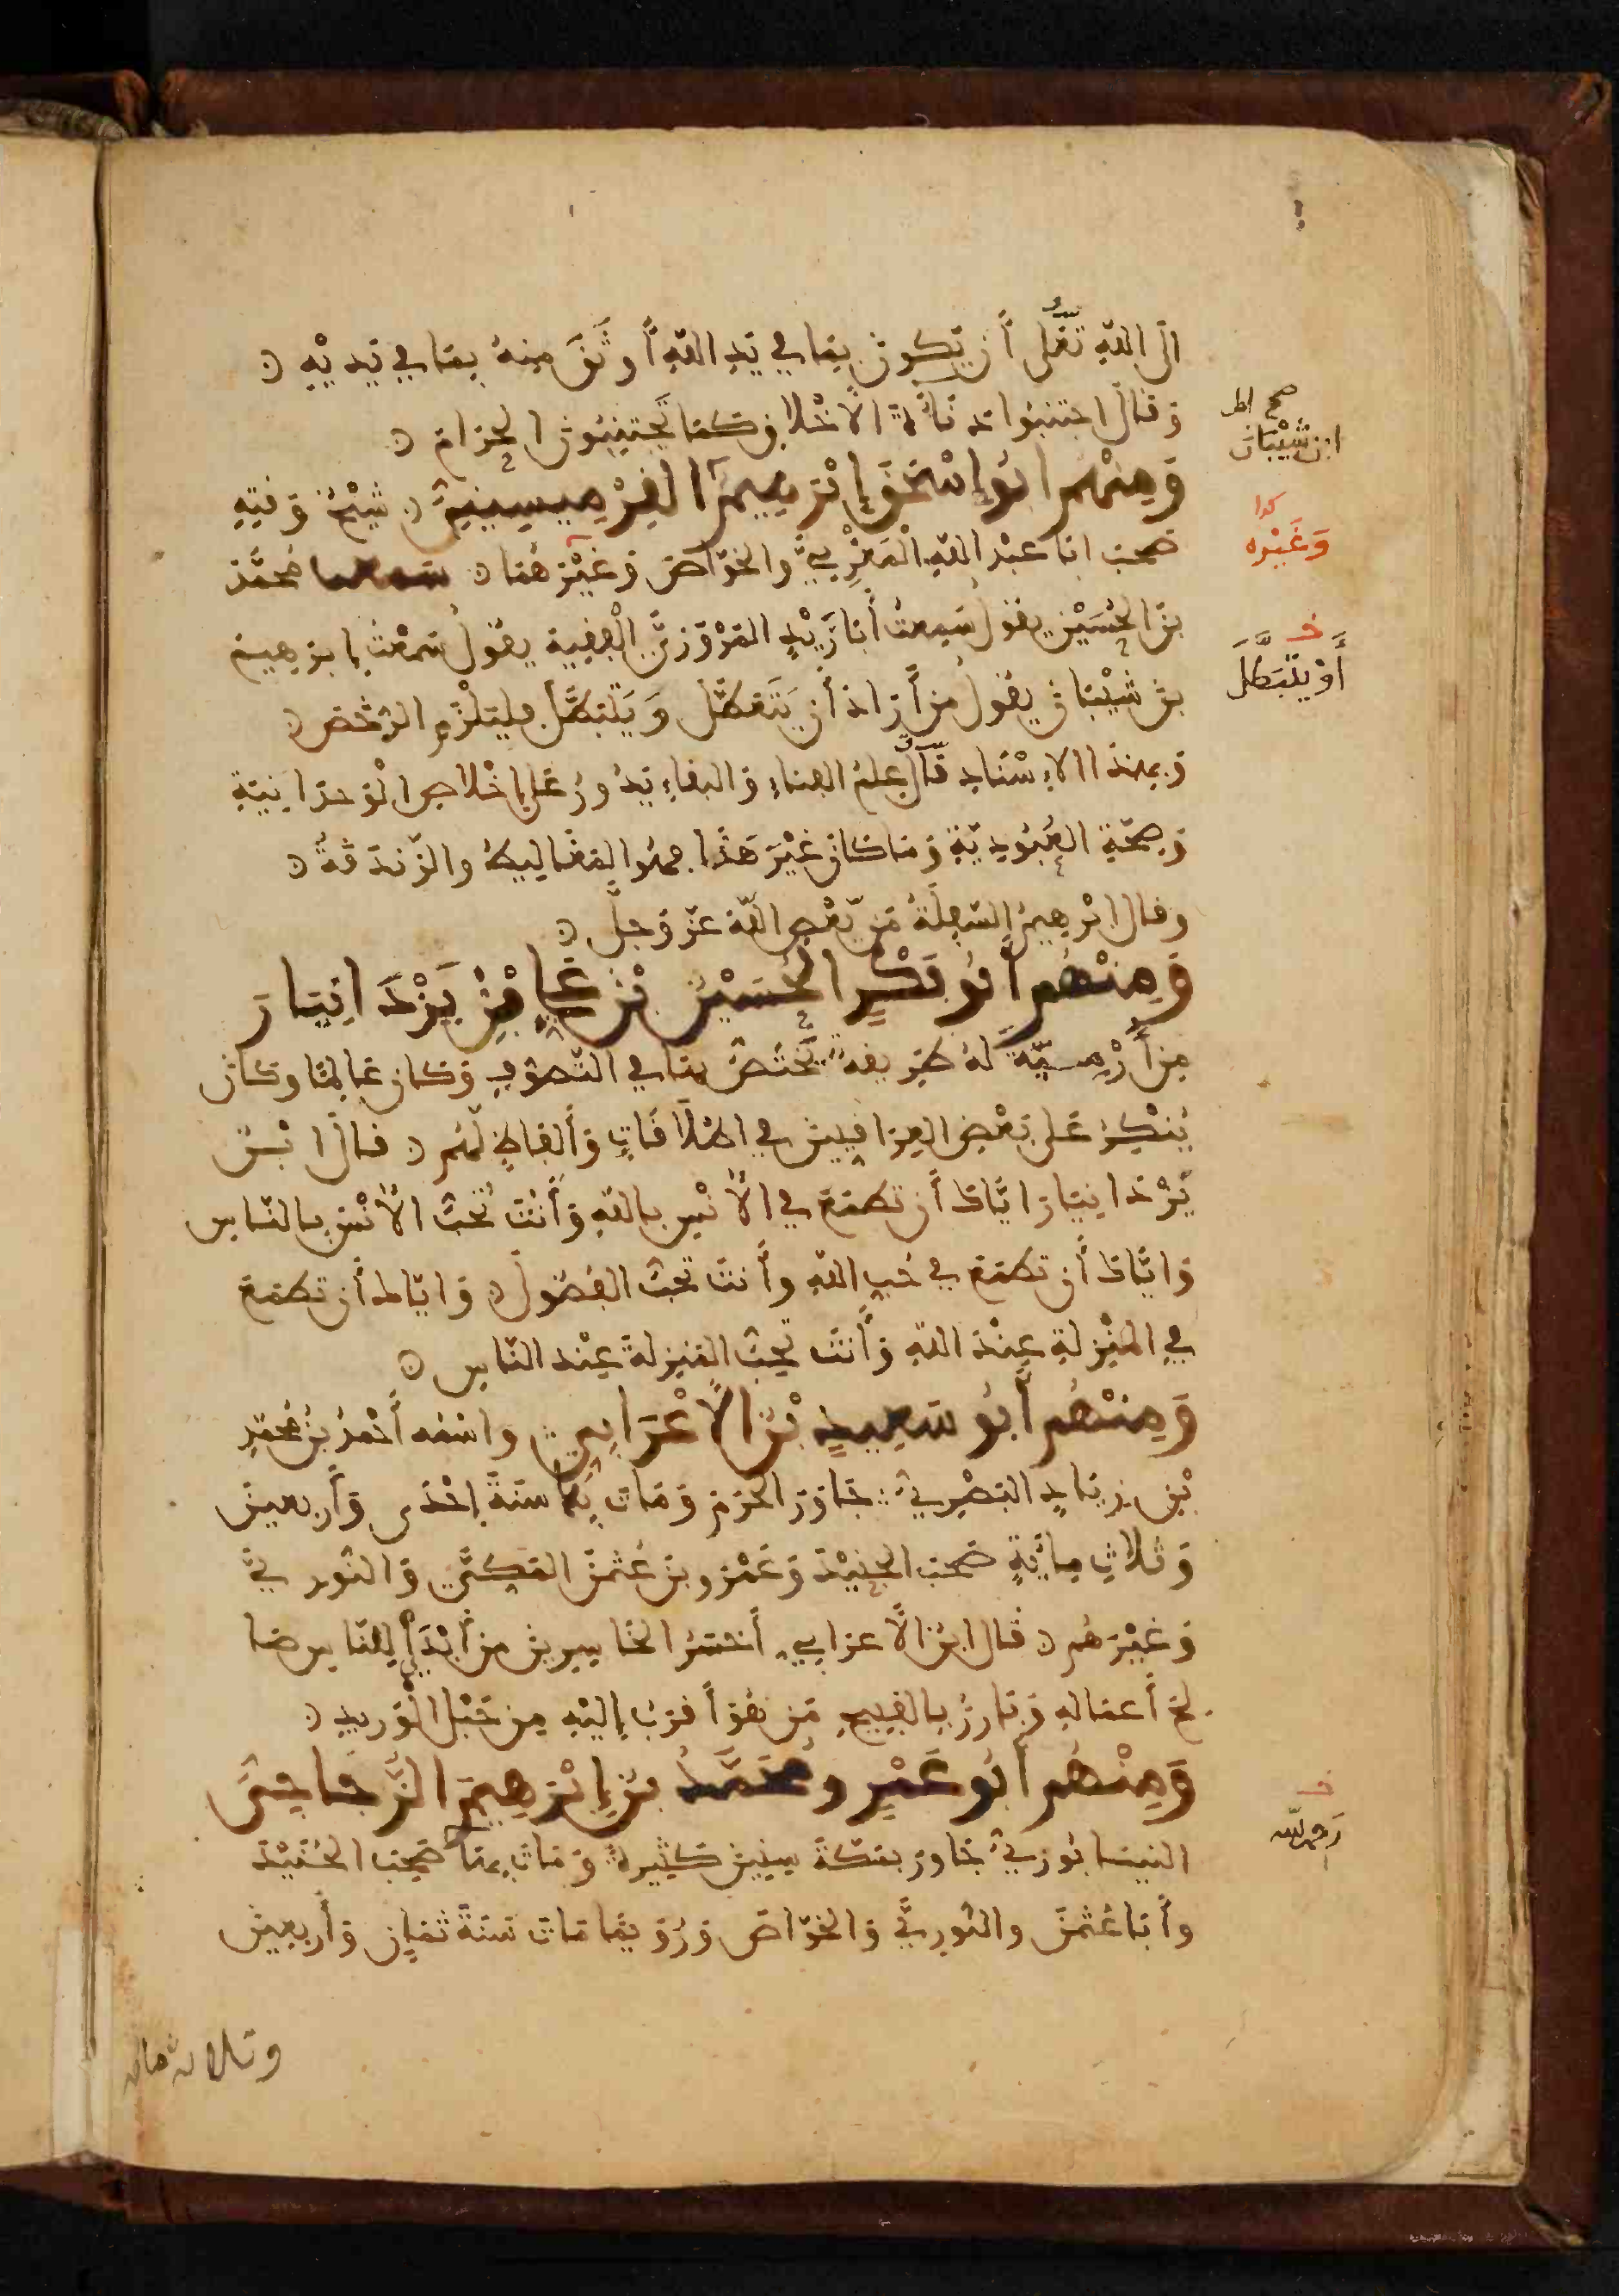 الى اللّهِ تَعَلى أن يكون بما في يَدِ اللّهِ أوثَقَ منهُ بما في يَدَيْهِ
وَقال اجتنبوا دَنَاءَةَ الأخْلاقِ كما تَجتَنِبُونَ الحرامَ
وَمِنْهُم ابُو إسْحَقَ إبْرَهِيمُ القِرْمِيسِينِيّ شيْخُ وَقتِهِ
صَحِبَ ابا عبْدَ اللّهِ الْمَغْرِبِيَّ والخوَّاصَ وَغيْرَهُمَا سَمعت مُحمَّدَ
بنَ الحُسَيْنِ يقولُ سَمِعتُ أبَا زَيْدٍ المَرْوَزِيَّ الْفقِيهَ يقُولُ سَمعْتُ إبرهيمَ
بنَ شَيْبَانَ يقُولُ من أرَادَ أن يَتَعَطَّلَ وَيَتَبَطَّلَ فليَلْزَمِ الرُّخَصَ
وَبهذا الاِسْنَادِ قَالَ عِلمُ الفناءِ وَالبقاءِ يَدُورُ عَلى إخْلاصِ الْوَحدَانِيَّةِ
وَصِحَّةِ العُبُودِيَّةِ وَمَا كانَ غَيْرَ هَذا فهُوَ المغَاليط والزَّندَقَةُ
وقال ابْرهِيمُ السَّفِلَةُ مَن يَّعْصِ اللّهَ عزّ وَجلَّ
وَمِنْهُم أبُو بَكْرٍ الحُسَيْنُ بْنُ عَلِيِّ بْنِ يَزْدَ انِيَارَ
مِن أُرْمِيَّةَ لَهُ طَرِيقةٌ يَّخْتَصُّ بها في التَّصَوُّفِ وَكان عَالِمًا وكَان
يُنْكِرُ عَلى بَعْضِ العِراقِيينَ في اطْلَاقَاتٍ وَأَلفاظٍ لَّهُم قالَ ابْنُ
يَزْدَانِيَارَ ايَّاكَ أن تَطمَعَ في الأُنْسِ باللّهِ وَأنْتَ تُحِبُّ الأُنْسَ بالنَّاسِ
وَايَّاكَ أن تطمَعَ في حُبِ اللّهِ وأنتَ تُحِبُّ الفُضُولَ وَايَّاكَ أن تطمَعَ
فِي المنْزِلَةِ عِنْدَ اللّهِ وَأنتَ تُحِبُّ المَنزِلَةَ عِنْدَ النَّاسِ
وَمِنْهُم أبُو سَعِيدِ بْنُ الأَعْرَابِيِّ واسْمُه أَحْمَدُ بنُ مُحمَّدِ
بْنِ زِيَادٍ البَصْرِيُّ جَاوَرَ الحَرَمَ وَمَاتَ بِهَا سَنَةَ إحْدَى وَأربعينَ
وَثلاثِ مِائَةٍ صَحِبَ الجُنَيْدَ وَعَمْرَو بنَ عُثمنَ المَكِيَّ وَالنُّورِيَّ
وَغَيْرَهُم قالَ ابنُ الأَعرابِي أَخسَرُ الخَاسِرينَ مَن أبْدَى لِلنَّاسِ صَا
لِحَ أَعمَالِهِ وَبَارَزَ بِالقَبِيحِ مَن هُوَ أَقرَبُ إِليْهِ مِن حَبْلِ الوَرِيدِ
وَمِنْهُم أبُو عَمْرٍو مُحَمَّدُ بنُ إبْرَهِيمَ الزُّجَاجِيُّ
النَّيْسَابُورِيُّ جَاورَ بمَكّةَ سِنِينَ كَثِيرةً وَمَاتَ بِهَا صَحِبَ الجُنَيْدَ
وأَبَا عُثمنَ والنُّورِيَّ وَالخوَّاصَ وَرُوَيْمًا مَاتَ سَنَةَ ثمَانٍ وَأَربعينَ
وثلاث مائة
صح
ابن شَيْبَانَ
كذا
وَغَيْره
خ
أَوْ يَتَبَطَّلَ
خ
رحمه اللّه